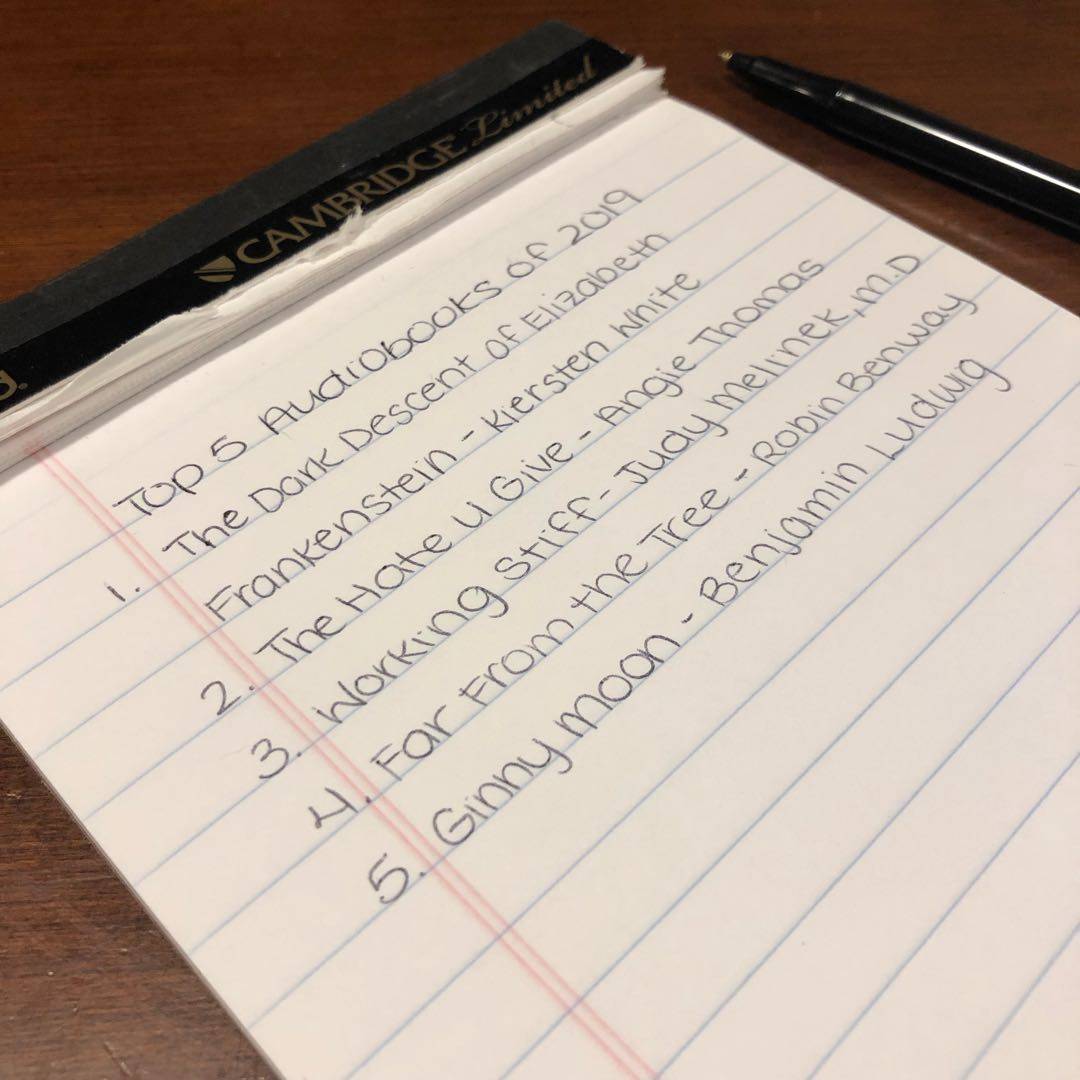 CAMBRIDGE Limited
Top 5 Audiobooks of 2019
1. The Dark Descent of Elizabeth
Frankenstein - Kiersten White
2. The Hate U Give - Angie Thomas
3. Working Stiff - Judy Melinek, M.D
4. Far From the Tree - Robin Benway
5. Ginny Moon - Benjamin Ludwig